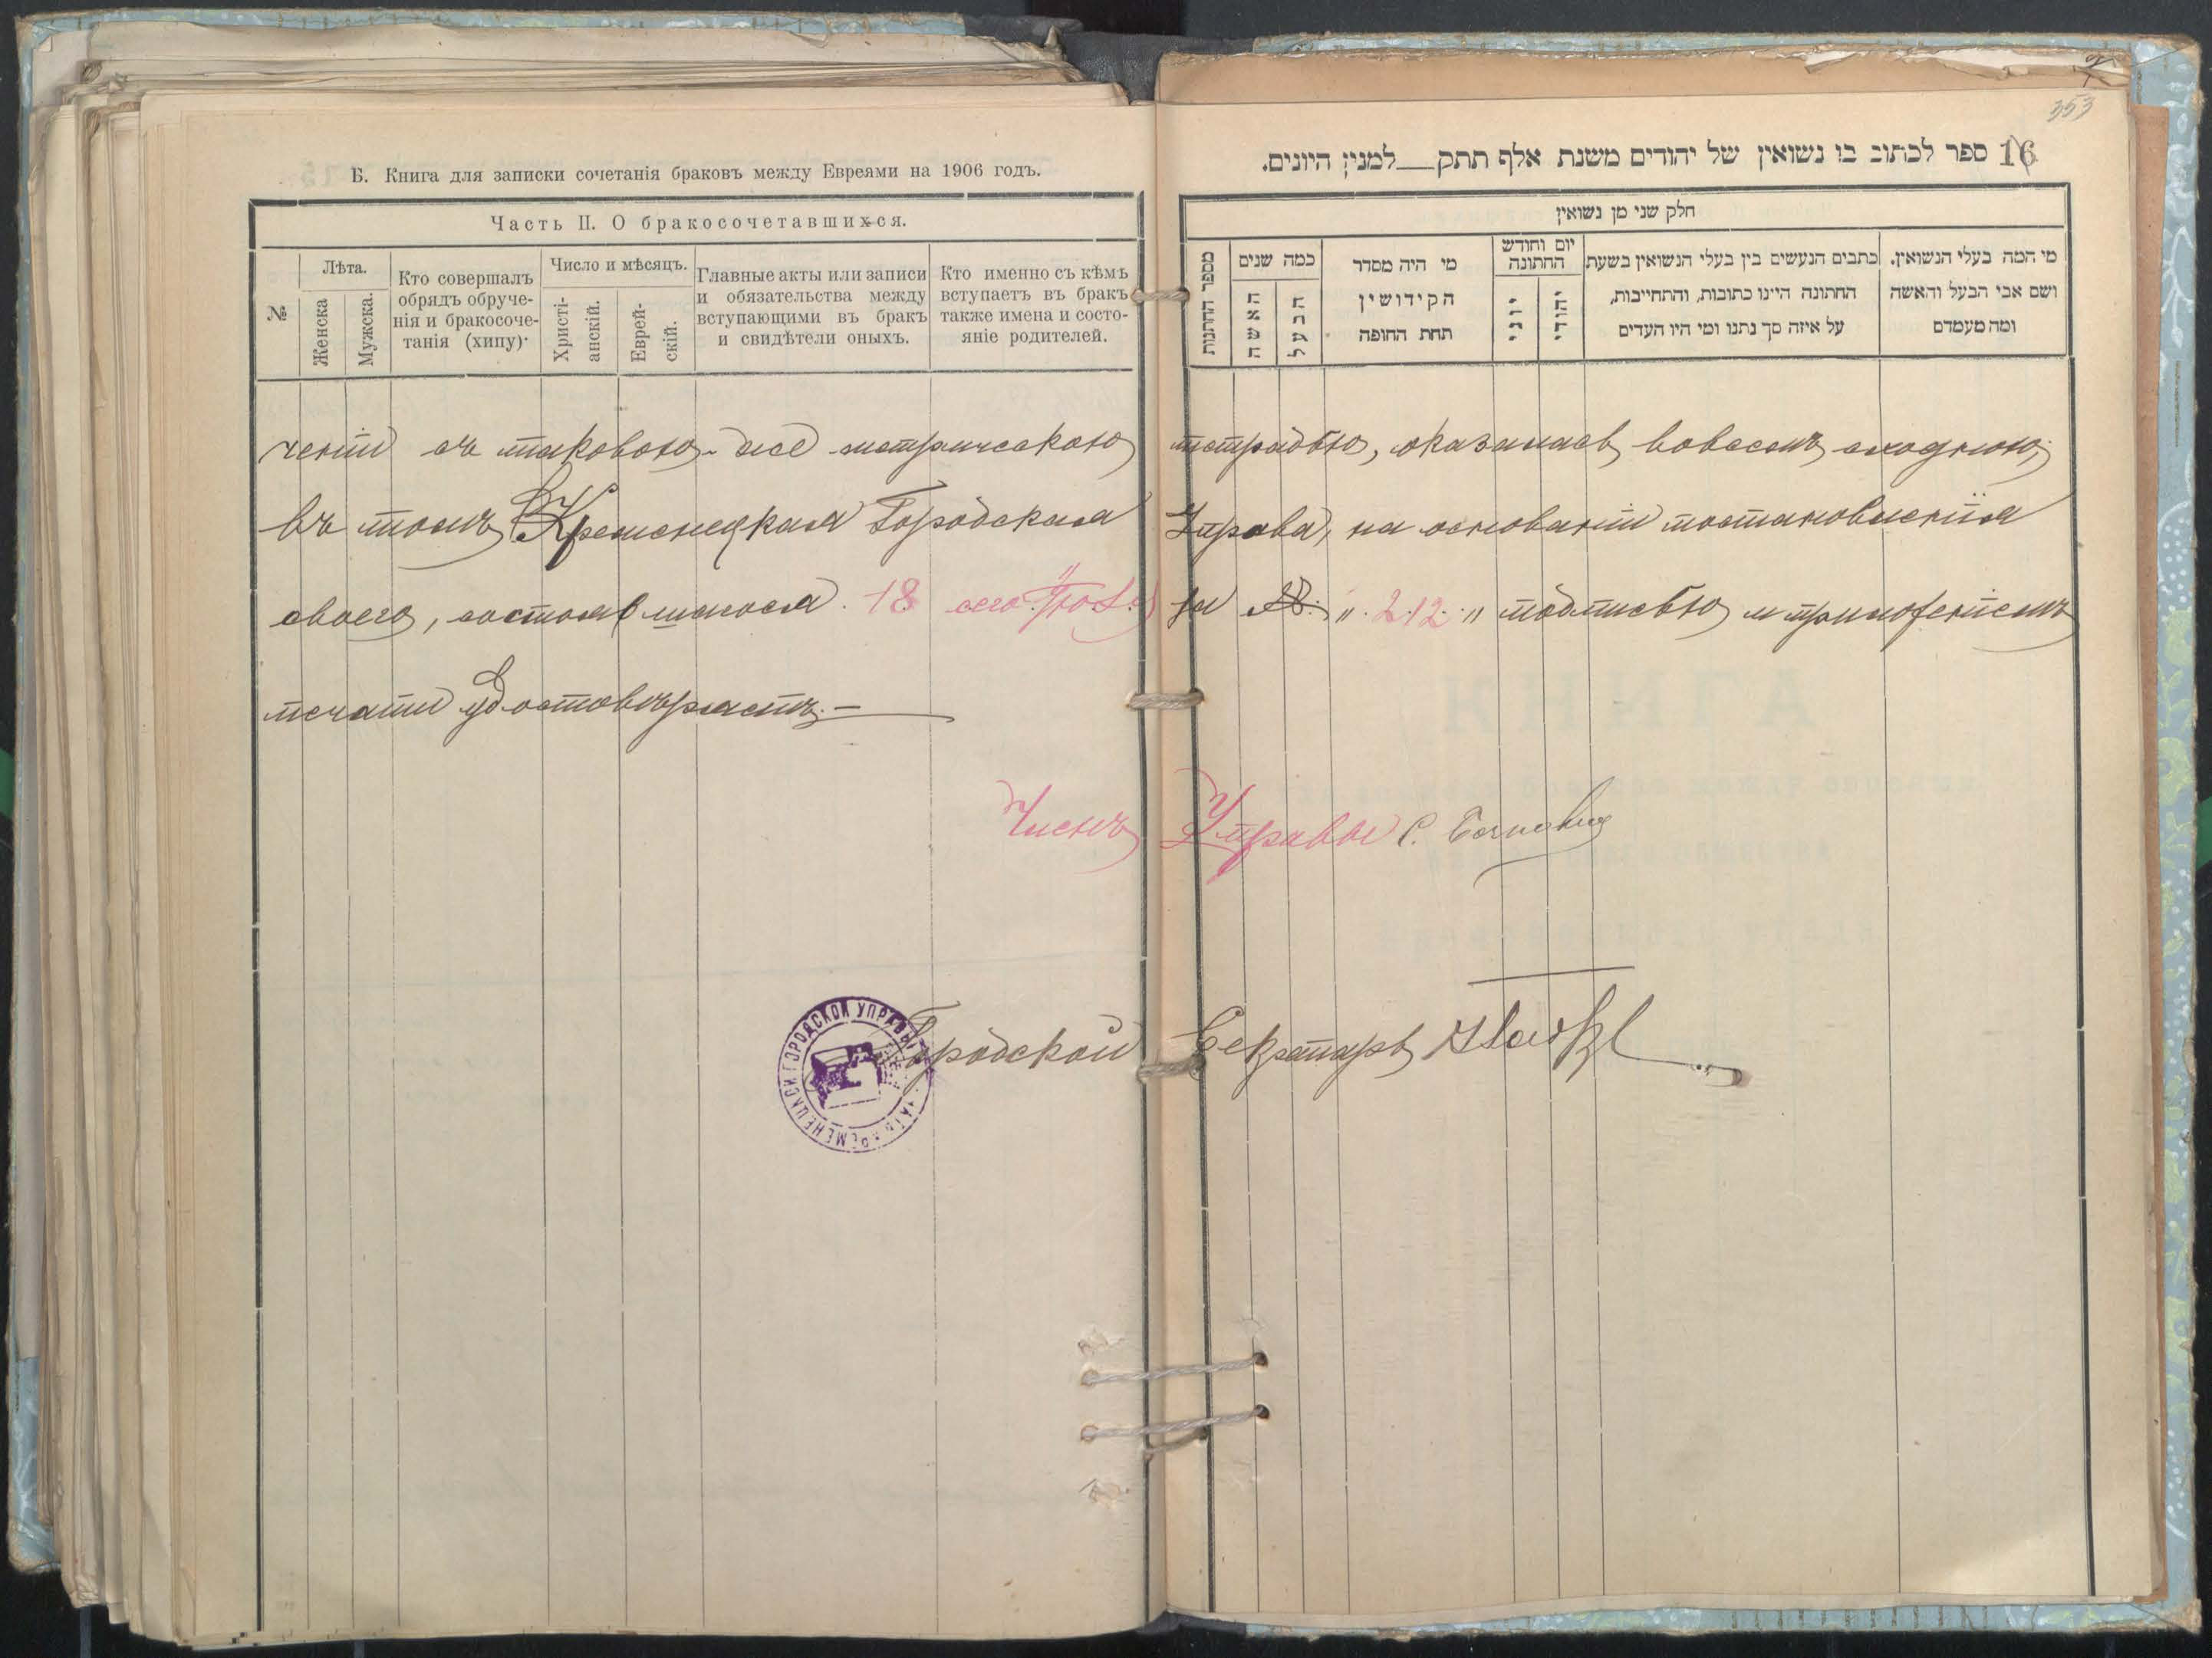 Б. Книга для записки сочетанія браковъ между Евреями на 1906 годъ.
Часть II. О бракосочетавшихся.
№
Лѣта.
Женска
Мужска.
Кто совершалъ
обрядъ обруче-
нія и бракосоче-
танія (хипу)·
Число и мѣсяцъ.
Христі-
анскій.
Еврей-
скій.
Главные акты или записи
и обязательства между
вступающими въ бракъ
и свидѣтели оныхъ.
Кто именно съ кѣмъ
вступаетъ въ бракъ
также имена и состо-
яніе родителей.
353
16 ספר לכתוב בו נשואין של יהודים משנת אלף תתק__למנין היונים.
חלק שני מן נשואין
מספר החתונות
כמה שנים
האשה
הבעל
מי היה מסדר
הקידושין
תחת החופה
יום וחודש
החתונה
יוני
יהודי
כתבים הנעשים בין בעלי הנשואין בשעת
החתונה היינו כתובות, והתחייבות,
על איזה סך נתנו ומי היו העדים
מי המה בעלי הנשואין.
ושם אבי הבעל והאשה
ומה מעמדם
ченіи съ таковою-же метрическою тетрадью, оказалась вовсемъ сходною;
въ томъ Кременецкая Городская Управа, на основаніи постановленія
своего, состоявшагося 18 сего за №. „ 212 „ подписью и приложеніемъ
печати удостовѣряетъ.—
Членъ Управы С.
Городской Секретарь
КРЕМЕНЕЦКОЙ ГОРОДСКОЙ УПРАВЫ